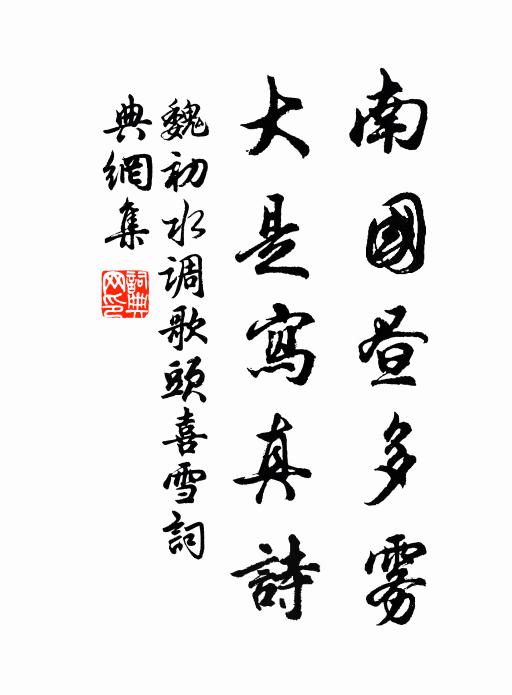 南國昼多霧
大是寫真詩
魏初水調歌頭喜雪詞
典網集
詞典
网印